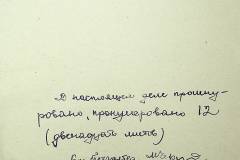 В настоящем деле прошну-
ровано, пронумеровано 12
(двенадцать листов)